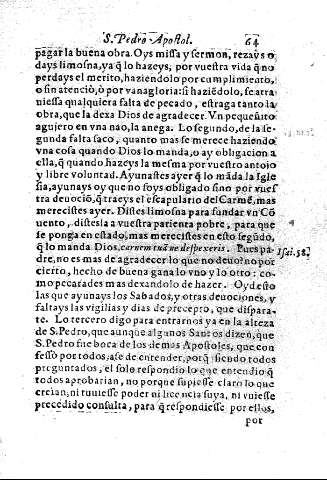 S. Pedro Apostol. 64
pagar la buena obra. Oys missa y sermon, rezays o
days limosna, ya q̃ lo hazeys, por vuestra vida q̃ no
perdays el merito, haziendolo por cumplimiento,
o sin atenciõ, ò por vanagloria: si haziẽdolo, se atra
uiessa qualquiera falta de pecado, estraga tanto la
obra, que la dexa Dios de agradecer. Vn pequeñito
agujero en vna nao, la anega. Lo segundo, de la se-
gunda falta saco, quanto mas se merece haziendo
vna cosa quando Dios lo manda, o ay obligacion a
ella, q̃ quando hazeys la mesma por vuestro antojo
y libre voluntad. Ayunastes ayer q̃ lo mãda la Igle
sia, ayunays oy que no soys obligado sino por vues
tra deuociõ, q̃ traeys el escapulario del Carmẽ, mas
merecistes ayer. Distes limosna para fundar vn Cõ
uento, distesla a vuestra parienta pobre, para que
se ponga en estado, mas merecistes en esto segũdo,
q̃ lo manda Dios, carnem tuã ne despexeris. Pues pa-
Isai. 58.
dre, no es mas de agradecer lo que no deuo? no por
cierto, hecho de buena gana lo vno y lo otro: co-
mo pecarades mas dexandolo de hazer. Oy desto
las que ayunays los Sabados, y otras deuociones, y
faltays las vigilias y dias de precepto, que dispara-
te. Lo tercero digo para entrarnos ya en la alteza
de S. Pedro, que aunque algunos Santos dizen, que
S. Pedro fue boca de los demas Apostoles, que con
fessò por todos, ase de entender, porq̃ siendo todos
preguntados, el solo respondio lo que entendio q̃
todos aprobarian, no porque supiesse claro lo que
creian, ni tuuiesse poder ni licencia suya, ni vuiesse
precedido consulta, para q̃ respondiesse por ellos,
por